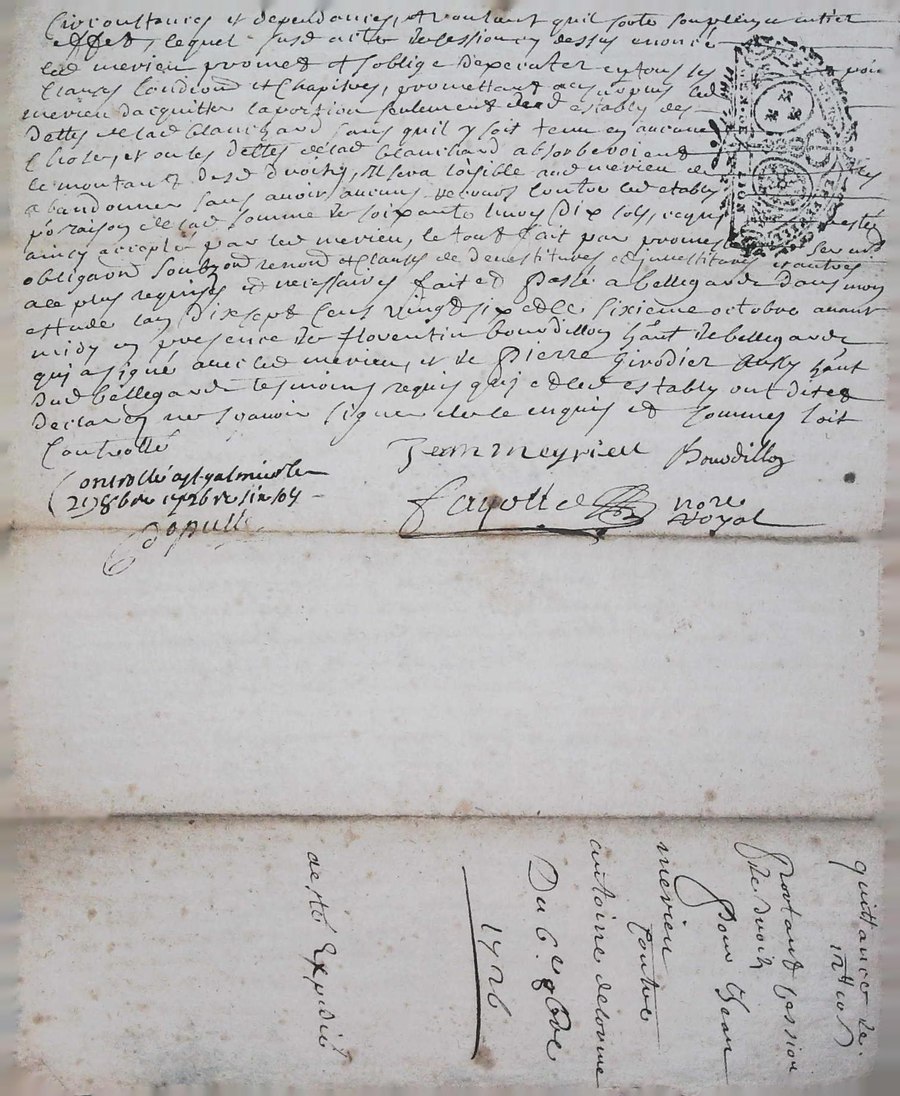 Circonstances et dependances, et voulant quil sorte son plein et entier
effet, lequel susd acte de cession cy dessus enoncé
led merieu promet et soblige dexecuter en tous ses
Clauses Conditions et Chapitres, promettant au surplus led
merieu dacquitter la portion seulement dud estably des
Dettes de lad blanchard sans quil y soit tenu en aucune
Chose, et ou les Dettes de lad blanchard absorberoient
le montant desd droits, il sera loisible aud merieu de
abandonner sans avoir aucun recours Contre led estably
po raison de lad somme de soixante livres dix sols, ce qui
ainsy accepté par led merieu, le tout fait par promesse
obligaon renond et Clauses de et autres
a ce plus requises et necessaires fait et Passé a bellegarde dans mon
estude lan Dix sept Cens Vingt six et le sixieme octobre avant
midy en presence de florentin bourdillon hant de bellegarde
qui a signé avec led merieu, et de Pierre Girodier aussy hant
dud bellegarde tesmoins requis qui et led estably ont dit et
declaré ne scavoir signer de ce enquis et sommes soit
Controllé
Jean meyrieu Bourdillon
Controllé a st galmier le
21 8bre 1726 re six sols
fayolle nore
royal
quittance de
Portant Cession
de droit
Pour Jean
merieu
Contre
antoine
Du 6e 8bre
1726
acte Expedié